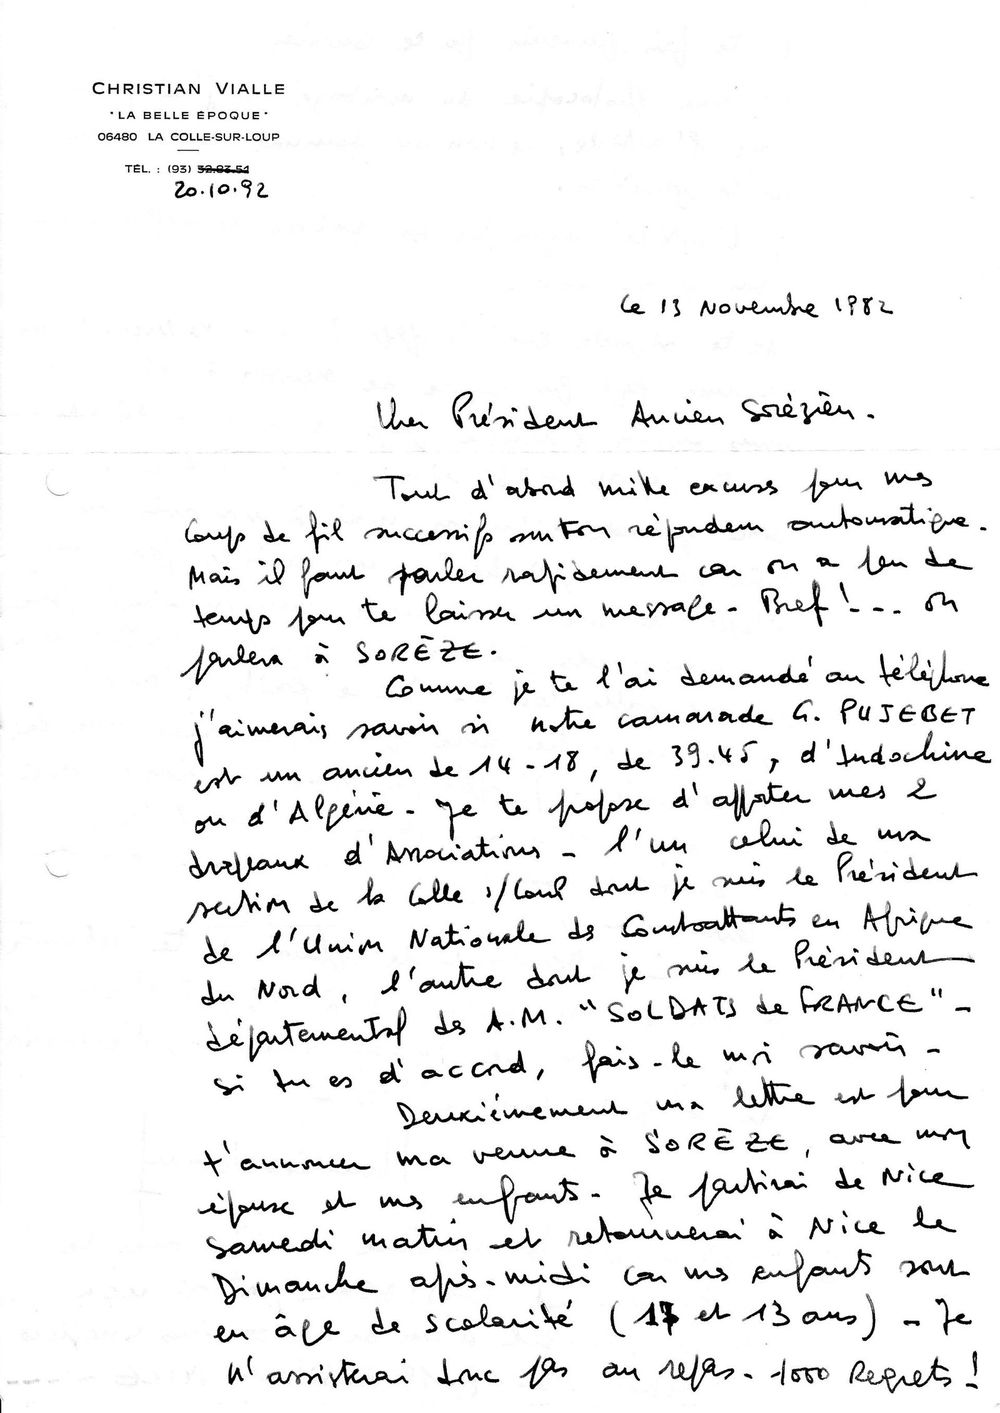 CHRISTIAN VIALLE
"LA BELLE ÉPOQUE"
06480 LA COLLE-SUR-LOUP
TÉL. : (93) 32.83.51
20.10.92
Le 13 Novembre 1982
Cher Président Ancien Sorézien.
Tout d'abord mille excuses pour mes
coups de fil successifs sur ton répondeur automatique.
Mais il faut parler rapidement car on a peu de
temps pour te laisser un message - Bref ! --- on
parlera à SORÈZE.
Comme je te l'ai demandé au téléphone
j'aimerais savoir si notre camarade G. PUJEBET
est un ancien de 14-18, de 39.45, d'Indochine
ou d'Algérie - Je te propose d'apporter mes 2
drapeaux d'Associations - l'un celui de ma
section de la Colle s/Loup dont je suis le Président
de l'Union Nationale des Combattants en Afrique
du Nord, l'autre dont je suis le Président
départemental des A.M. "SOLDATS de FRANCE" -
Si tu es d'accord, fais-le moi savoir -
Deuxièmement ma lettre est pour
t'annoncer ma venue à SORÈZE, avec mon
épouse et mes enfants - Je partirai de Nice
Samedi matin et retournerai à Nice le
Dimanche après-midi car mes enfants sont
en âge de scolarité (17 et 13 ans) - Je
n'assisterai donc pas au repas - 1000 Regrets !